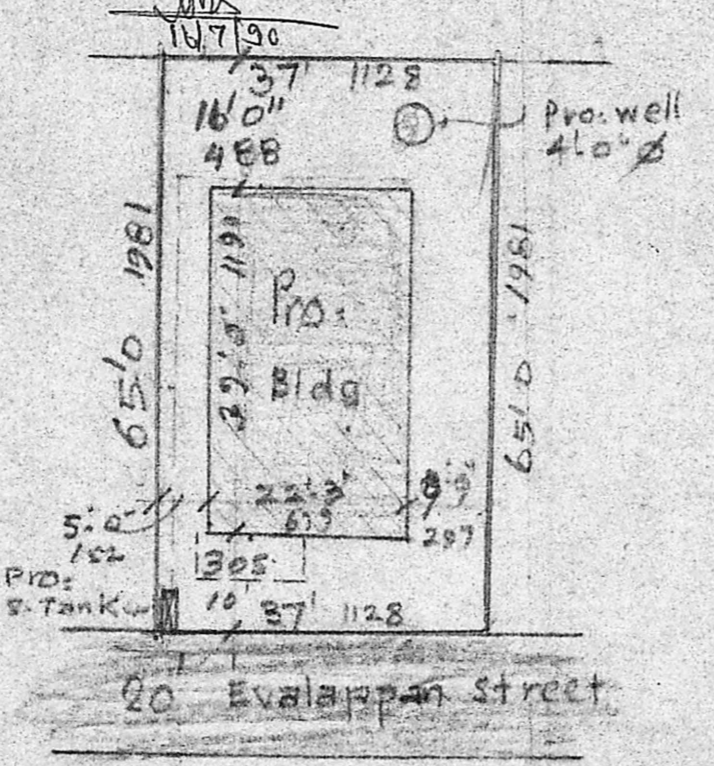 16/7/90
37' 1128
16'0"
488
Pro. well
4'.0" Ø
65'0 1981
39'.0" 1191
Pro.
Bldg
65'.0 1981
22'.3"
679
9'.9"
297
5'.0"
152
305
Pro:
S. Tank
10'
37' 1128
20 Evalappan Street